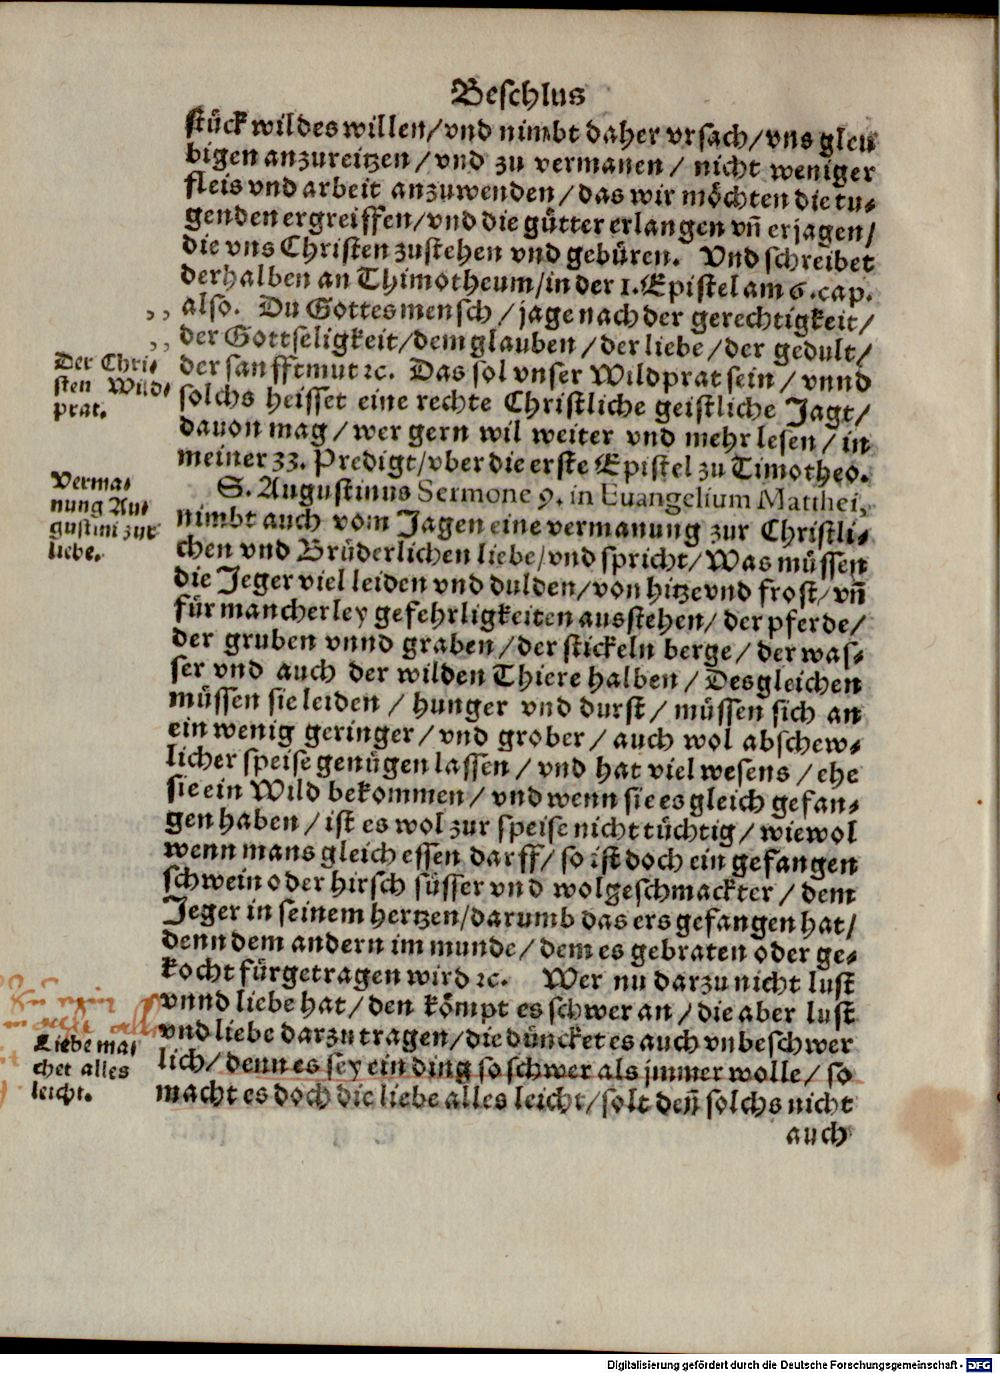 Beschlus
stück wildes willen/vnd nimbt daher vrsach/vns gleu
bigen anzureitzen/vnd zu vermanen/ nicht weniger
fleis vnd arbeit anzuwenden/das wir möchten die tu-
genden ergreiffen/vnd die gütter erlangen vn̄ erjagen/
die vns Christen zustehen vnd gebüren. Vnd schreibet
derhalben an Thimotheum/in der 1. Epistel am 6. cap.
,, also. Du Gottes mensch/jage nach der gerechtigkeit/
,, der Gottseligkeit/dem glauben/der liebe/der gedult/
Der Chri-
sten Wild-
prat.
der sanfftmut ꝛc. Das sol vnser Wildprat sein/vnnd
solchs heisset eine rechte Christliche geistliche Jagt/
dauon mag/wer gern wil weiter vnd mehr lesen/in
meiner 33. Predigt/vber die erste Epistel zu Timotheo.
Verma-
nung Au-
gustini zur
liebe.
S. Augustinus Sermone 9. in Euangelium Matthei,
nimbt auch vom Jagen eine vermanung zur Christli-
chen vnd Brüderlichen liebe/vnd spricht/Was müssen
die Jeger viel leiden vnd dulden/von hitze vnd frost/vn̄
für mancherley gefehrligkeiten ausstehen/der pferde/
der gruben vnnd graben/der stickeln berge/der was-
ser vnd auch der wilden Thiere halben/Desgleichen
müssen sie leiden/hunger vnd durst/müssen sich an
ein wenig geringer/vnd grober/auch wol abschew-
licher speise genügen lassen/vnd hat viel wesens/ehe
sie ein Wild bekommen/vnd wenn sie es gleich gefan-
gen haben/ist es wol zur speise nicht tüchtig/wiewol
wenn mans gleich essen darff/so ist doch ein gefangen
schwein oder hirsch süsser vnd wolgeschmackter/dem
Jeger in seinem hertzen/darumb das ers gefangen hat/
denn dem andern im munde/dem es gebraten oder ge-
kocht fürgetragen wird ꝛc. Wer nu darzu nicht lust
vnnd liebe hat/den kömpt es schwer an/die aber lust
vnd liebe darzu tragen/die düncket es auch vnbeschwer
Liebe ma-
chet alles
leicht.
lich/denn es sey ein ding so schwer als jmmer wolle/so
macht es doch die liebe alles leicht/solt den̄ solchs nicht
auch
Digitalisierung gefördert durch die Deutsche Forschungsgemeinschaft - DFG